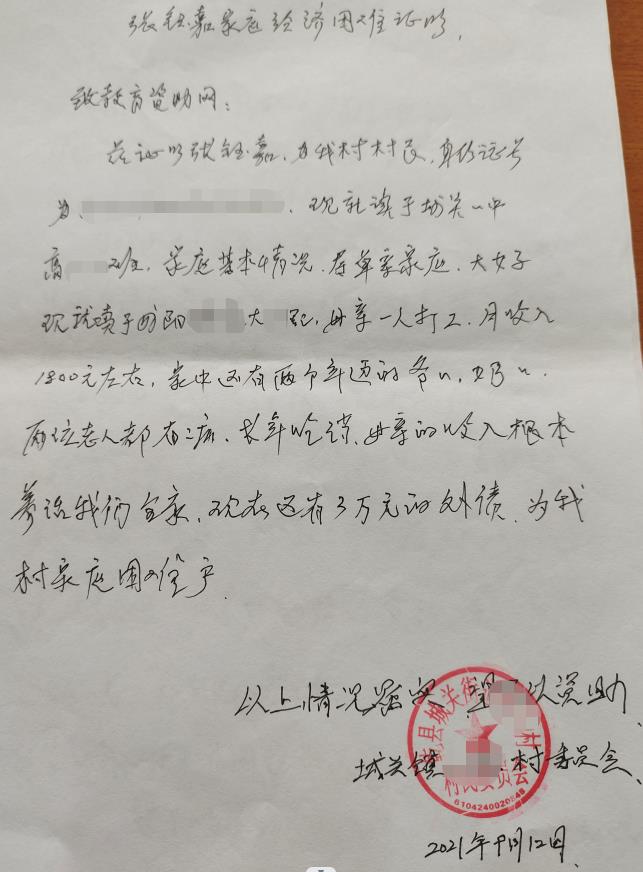 张钰嘉家庭经济困难证明,
致教育资助网:
兹证明张钰嘉,为我村村民,身份证号
为, 现就读于城关一中
高 班,家庭基本情况,是单亲家庭,大女子
现就读于 大 ,母亲一人打工,月收入
1800元左右,家中还有两个年迈的爷〃,奶〃.
两位老人都有 病,长年吃药,母亲的收入根本
养活我们全家,现在还有3万元的外债,为我
村家庭困难户.
以上情况属实 望 以资助
城关镇 村委员会.
2021年9月12日.
县城关街 村
村民委员会
6104240020848